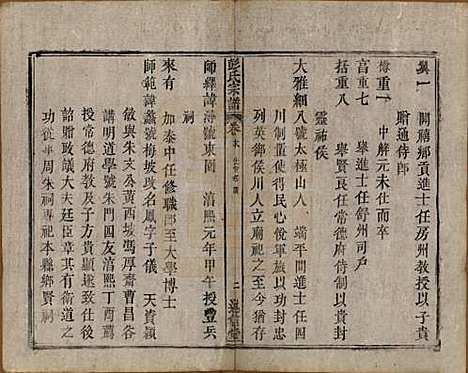 異一　開禧鄉貢進士任房州教授以子貴
贈通侍郎
重一　中解元未仕而卒
高重七　舉進士任舒州司戶
括重八　舉賢良任常德府待制以貴封
靈祐侯
大雅細八號太極山人　端平間進士任四
川制置使得民心悅軍旅以功封忠
烈英衛侯川人立廟祀之至今猶存
彭氏宗譜　卷　二
師繹諱　號東園　淳熙元年甲午授豐兵
祠
來有　加泰中任修職郎至大學博士
師範諱　號梅坡改名鳳字子儀　天資穎
敏與朱文公黃西坡馮厚齋曹昌谷
講明道學號朱門四友淳熙丁酉薦
授常德府教及子貴顯遂致仕致贈
忠諡政議大夫廷臣章其有衛道之
功從平周朱祠專祀本縣鄉賢祠